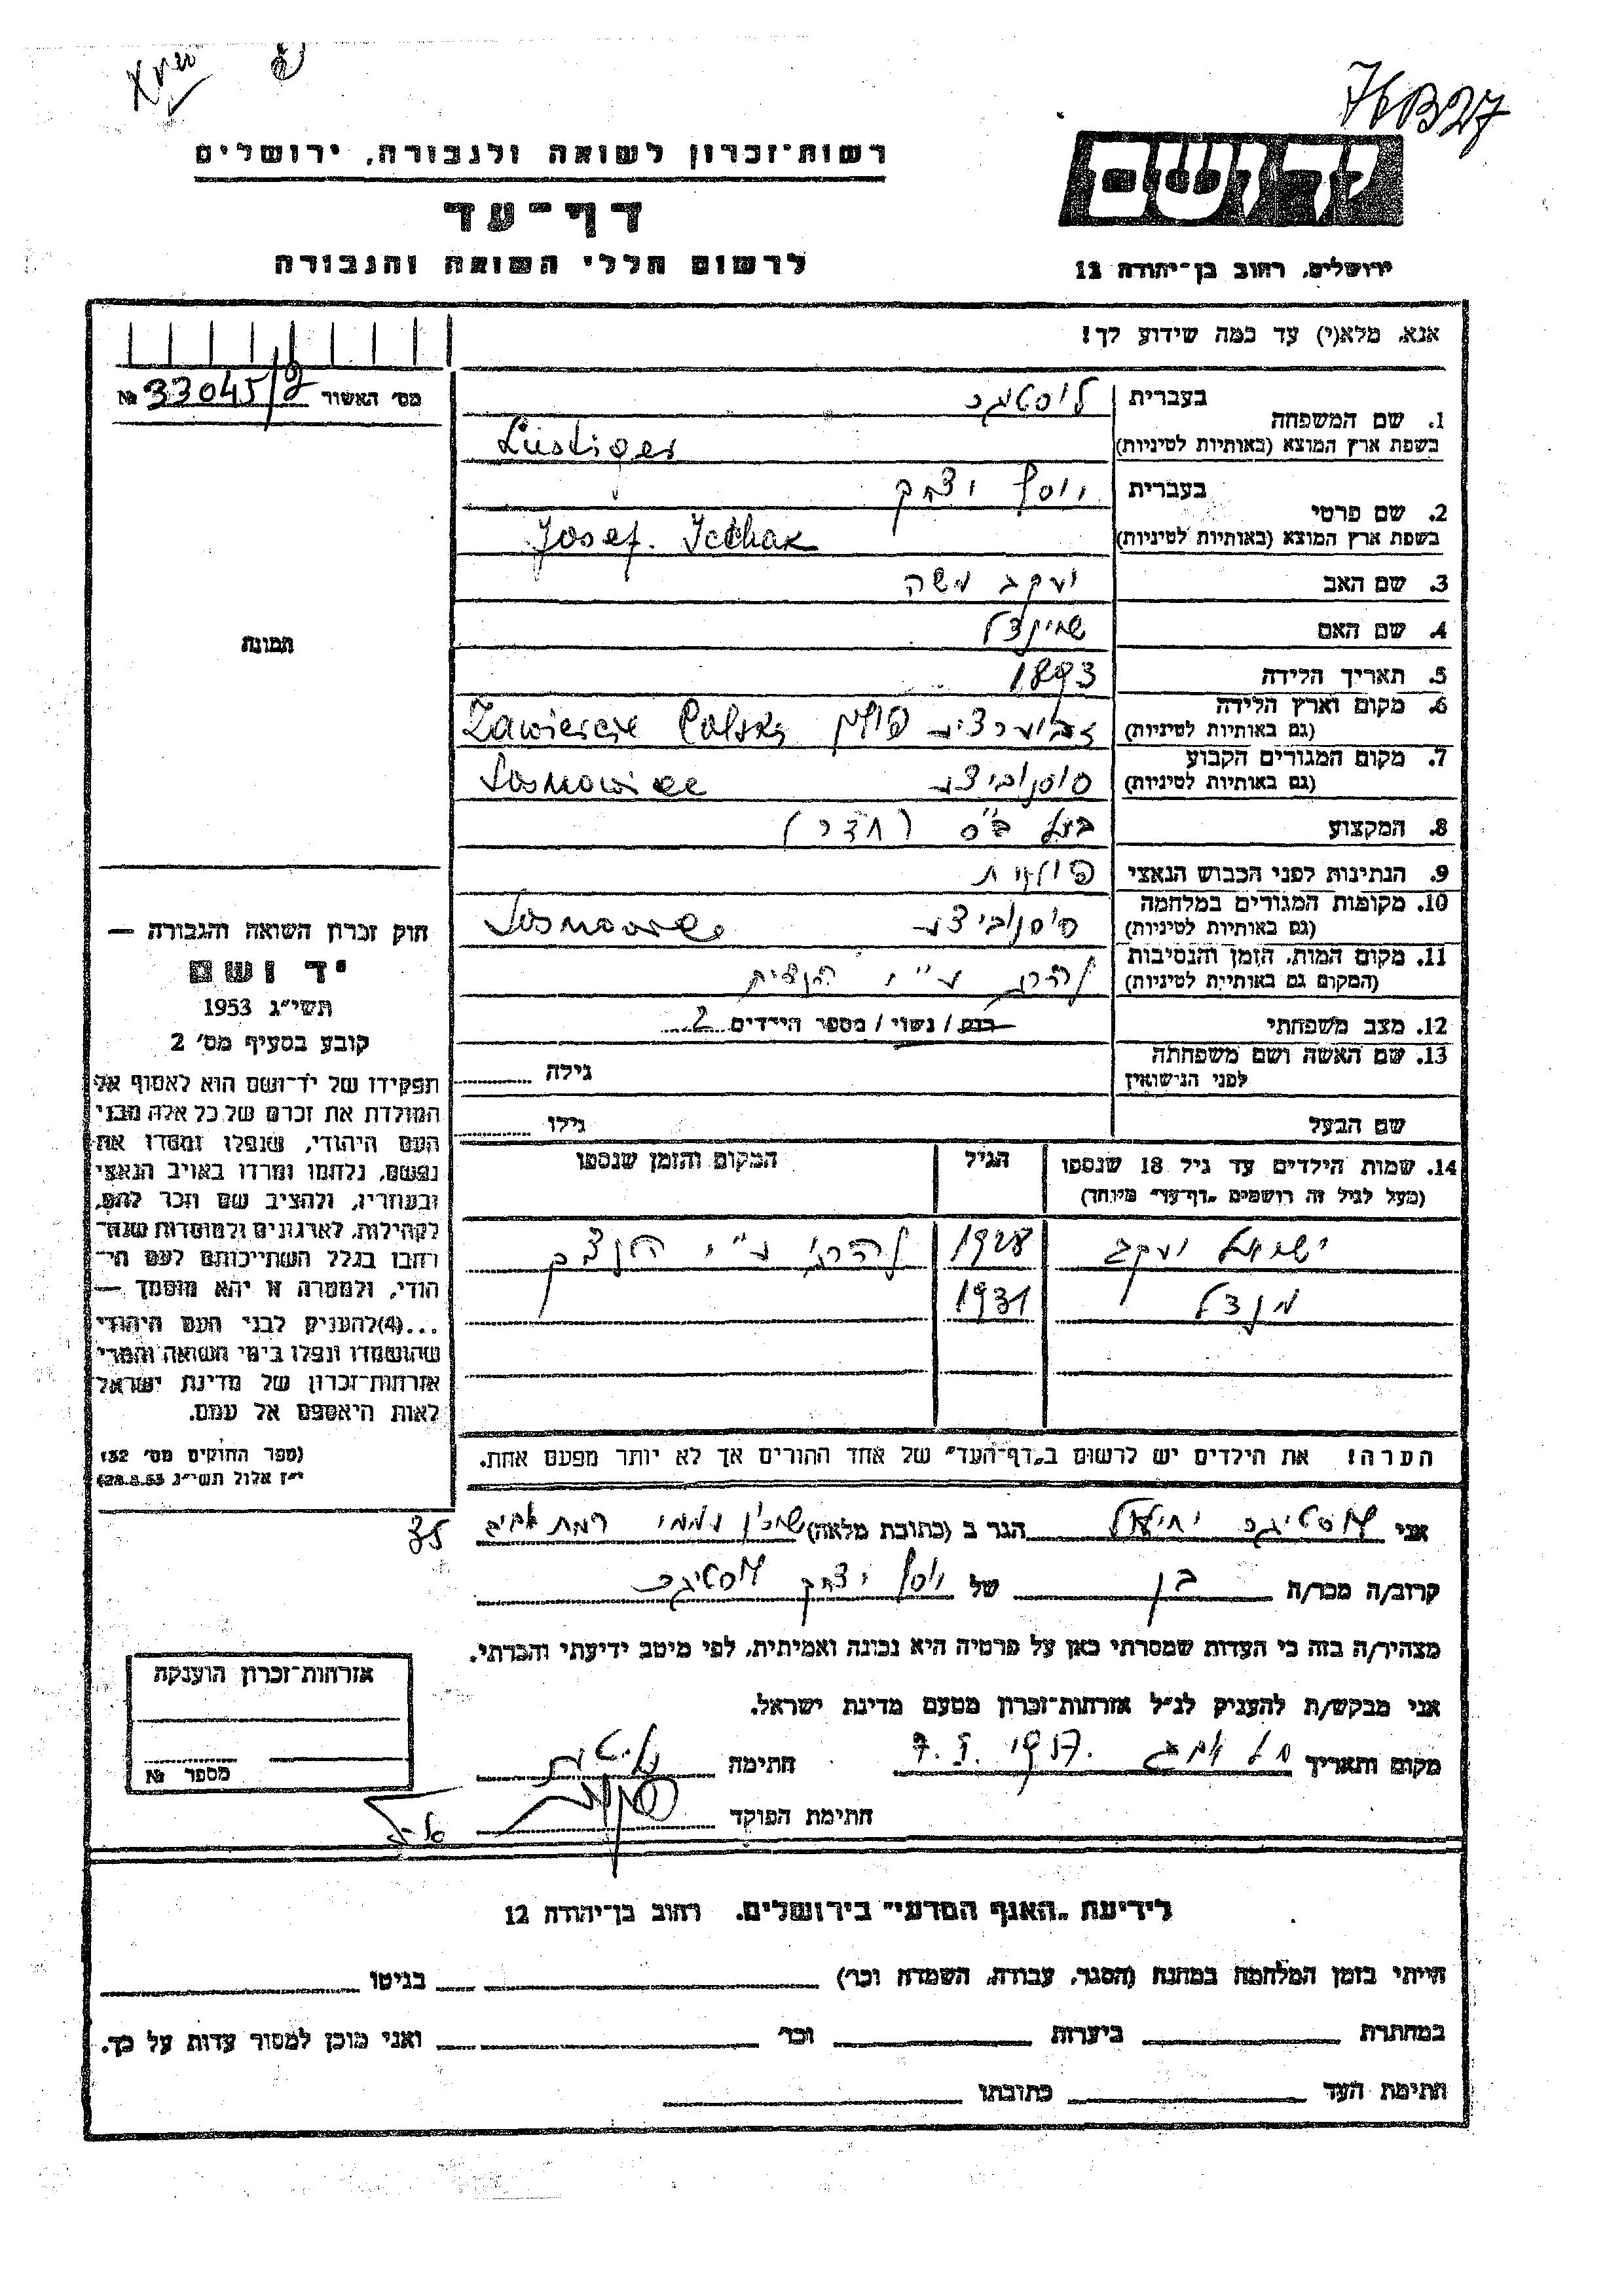 HB27
רשות־זכרון לשואה ולגבורה, ירושלים
יד ושם
דף־עד
לרשום חללי השואה והגבורה
ירושלים, רחוב בן־יהודה 12
אנא, מלא(י) עד כמה שידוע לך!
מס' האשור № 33045/2
1. שם המשפחה
בעברית לוסטיגר
בשפת ארץ המוצא (באותיות לטיניות) Lustiger
2. שם פרטי
בעברית יוסף יצחק
בשפת ארץ המוצא (באותיות לטיניות) Josef. Icchak
3. שם האב יעקב משה
4. שם האם שיינדל
5. תאריך הלידה 1893
6. מקום וארץ הלידה
(גם באותיות לטיניות) זביערציע פולין Polska Zawiercie
7. מקום המגורים הקבוע
(גם באותיות לטיניות) סוסנוביצע Sosnowice
8. המקצוע
9. הנתינות לפני הכבוש הנאצי פולנית
10. מקומות המגורים במלחמה
(גם באותיות לטיניות) סוסנוביצע
11. מקום המות, הזמן והנסיבות
(המקום גם באותיות לטיניות) נהרג ע"י
12. מצב משפחתי רווק / נשוי / מספר הילדים 2
13. שם האשה ושם משפחתה
לפני הנישואין גילה
שם הבעל גילו
14. שמות הילדים עד גיל 18 שנספו
(מעל לגיל זה רושמים „דף־עד" מיוחד)
הגיל
המקום והזמן שנספו
ישראל יעקב 1928 נהרג ע"י
מנדל 1931
הערה! את הילדים יש לרשום ב„דף־העד" של אחד ההורים אך לא יותר מפעם אחת.
תמונה
חוק זכרון השואה והגבורה —
יד ושם
תשי"ג 1953
קובע בסעיף מס' 2
תפקידו של יד־ושם הוא לאסוף אל
המולדת את זכרם של כל אלה מבני
העם היהודי, שנפלו ומסרו את
נפשם, נלחמו ומרדו באויב הנאצי
ובעוזריו, ולהציב שם וזכר להם,
לקהילות, לארגונים ולמוסדות שנח־
רבו בגלל השתייכותם לעם הי־
הודי, ולמטרה זו יהא מוסמך —
...(4) להעניק לבני העם היהודי
שהושמדו ונפלו בימי השואה והמרי
אזרחות־זכרון של מדינת ישראל
לאות היאספם אל עמם.
(ספר החוקים מס' 132
י"ז אלול תשי"ג 28.8.53)
אני לוסטיגר יחיאל הגר ב (כתובת מלאה) שיכון עממי רמת אביב 35
קרוב/ה מכר/ה בן של יוסף יצחק לוסטיגר
מצהיר/ה בזה כי העדות שמסרתי כאן על פרטיה היא נכונה ואמיתית, לפי מיטב ידיעתי והכרתי.
אני מבקש/ת להעניק לנ"ל אזרחות־זכרון מטעם מדינת ישראל.
מקום ותאריך תל אביב 7.I.1957 חתימה
חתימת הפוקד
אזרחות־זכרון הוענקה
מספר №
לידיעת „האגף המדעי" בירושלים, רחוב בן־יהודה 12
הייתי בזמן המלחמה במחנה (הסגר, עבודה, השמדה וכו') בגיטו
במחתרת ביערות וכו' ואני מוכן למסור עדות על כך.
חתימת העד כתובתו